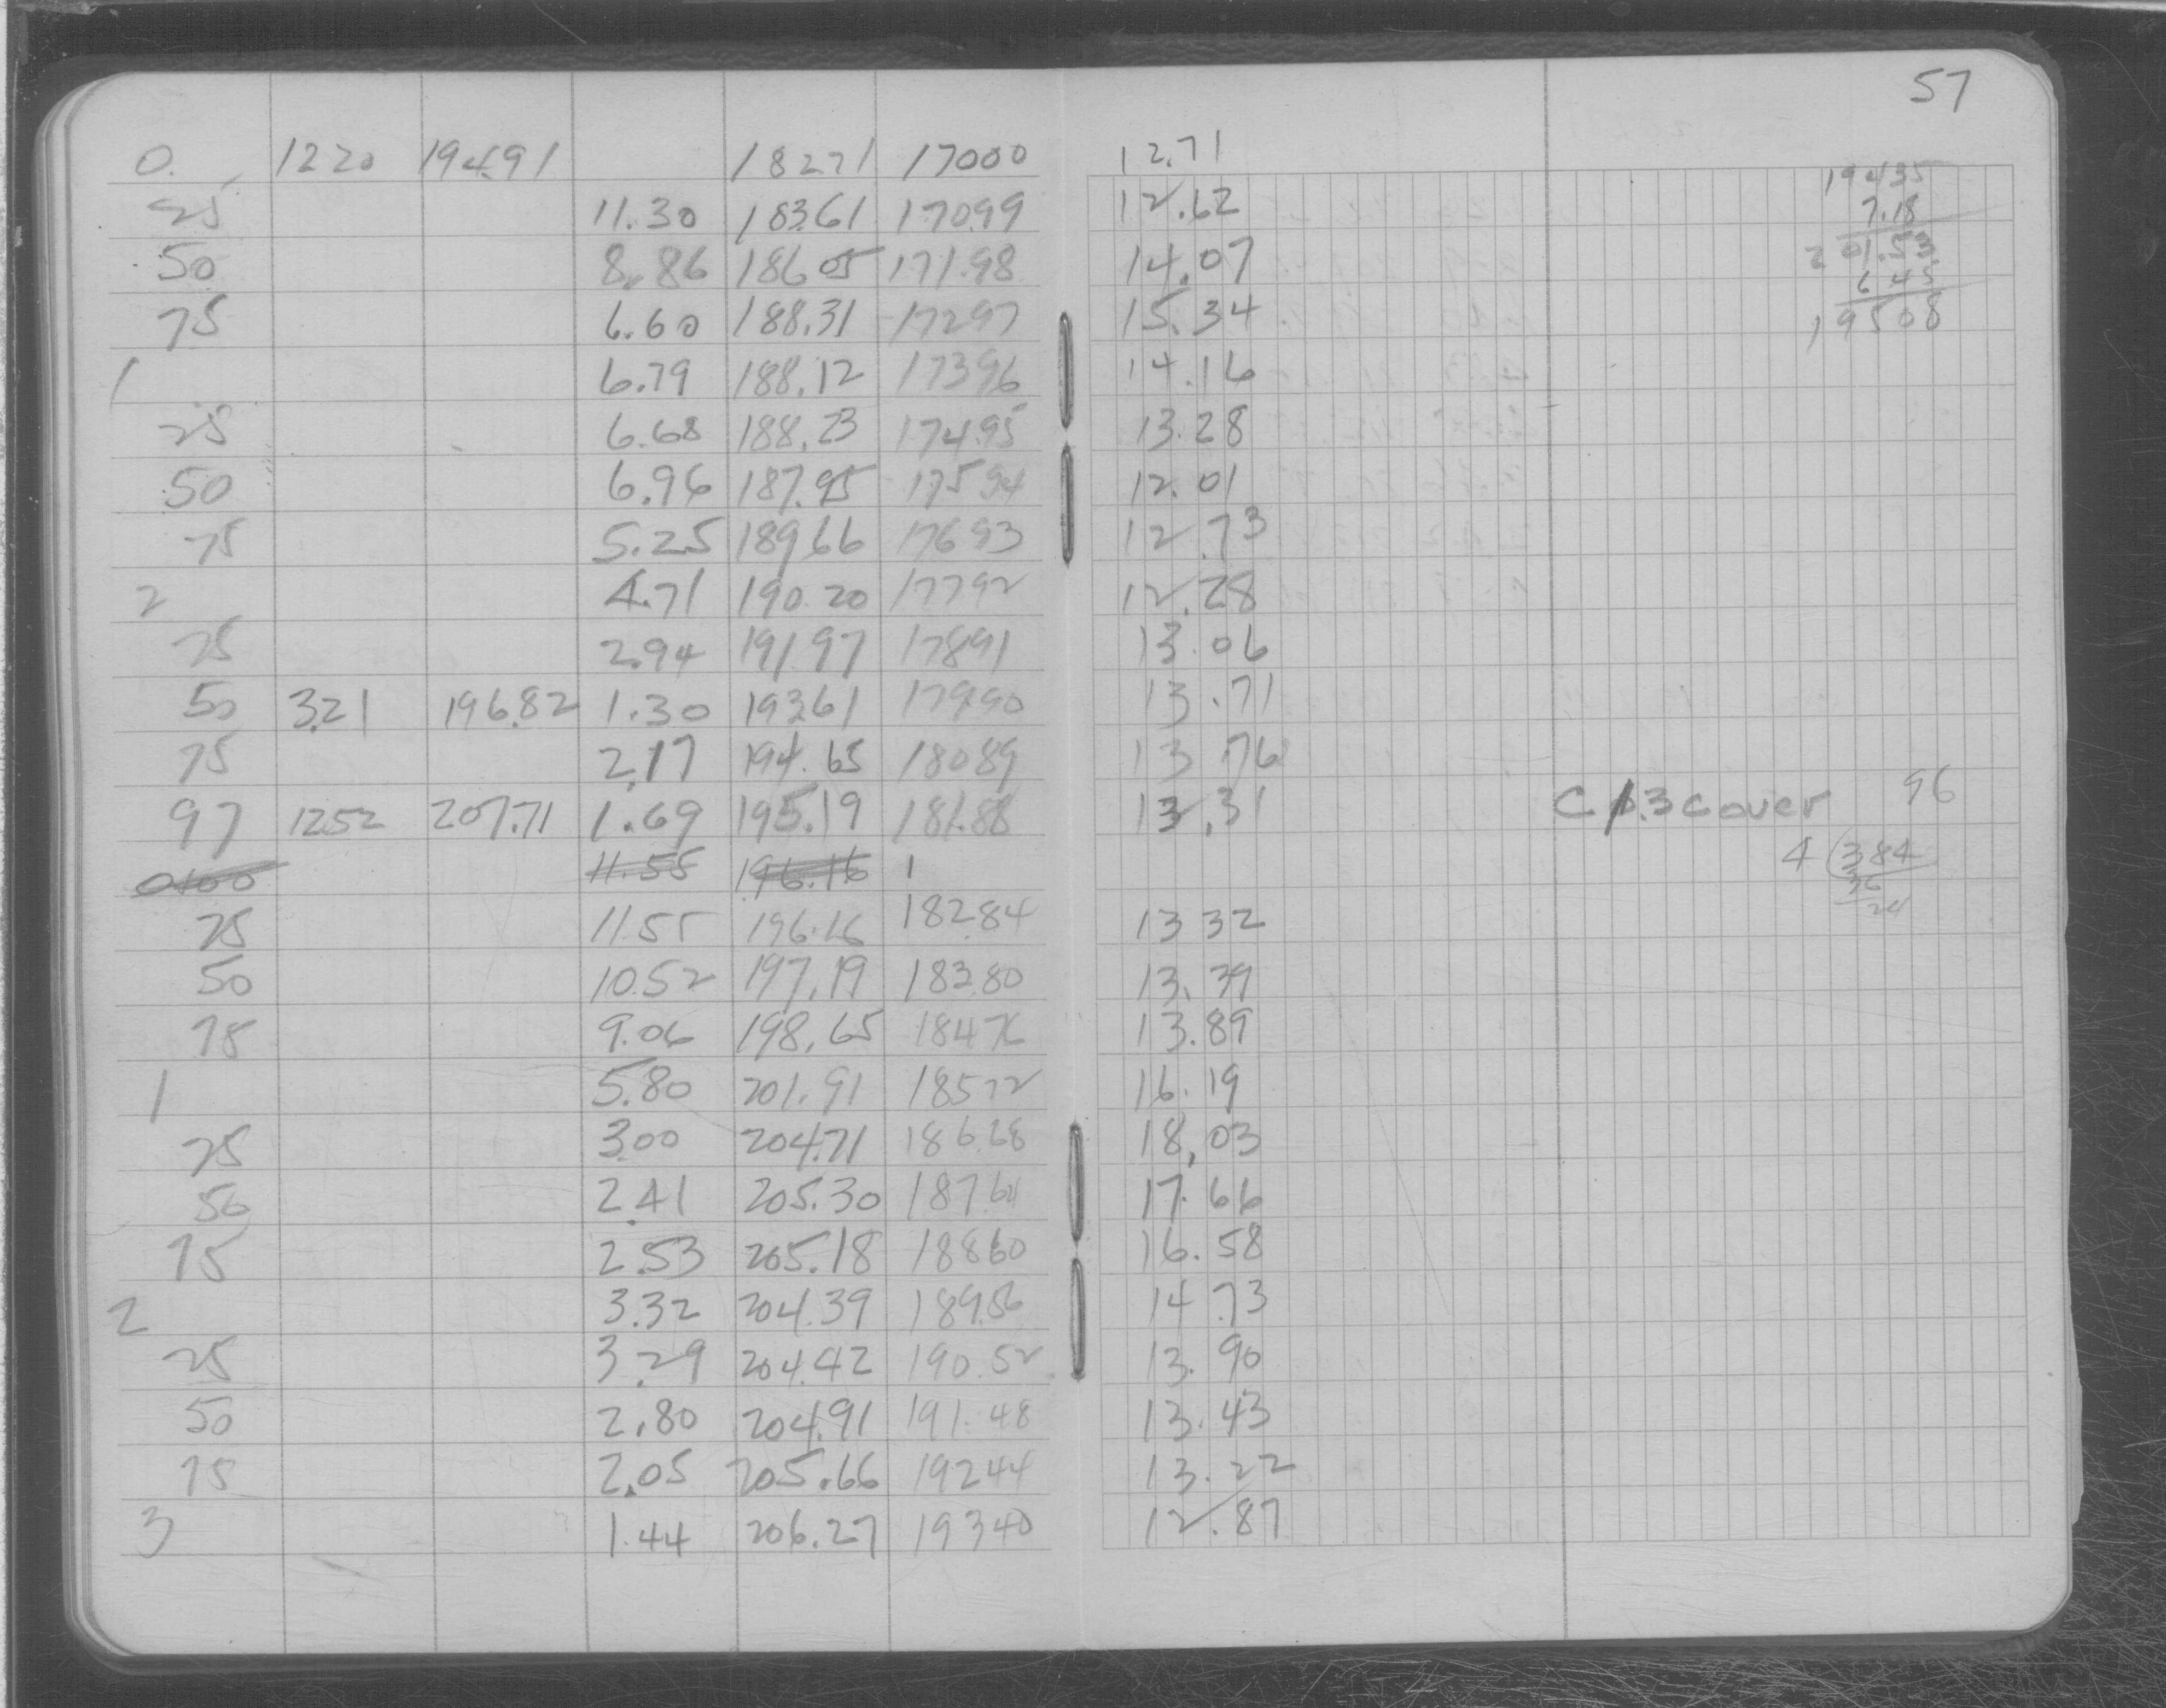 57
0. 1220 194.91 18271 17000 12.71
25 11.30 183.61 170.99 12.62
50 8.86 186.05 171.98 14.07
75 6.60 188.31 17297 15.34
1 6.79 188.12 17396 14.16
25 6.68 188.23 174.95 13.28
50 6.96 187.95 17594 12.01
75 5.25 189.66 17693 12.73
2 4.71 190.20 17792 12.28
25 2.94 191.97 17891 13.06
50 3.21 196.82 1.30 193.61 179.90 13.71
75 2.17 194.65 18089 13.76
97 12.52 207.71 1.69 195.19 181.88 13.31
0+00 11.55 196.16 1
25 11.55 196.16 182.84 13 32
50 10.52 197.19 183.80 13.39
75 9.06 198.65 18476 13.89
1 5.80 201.91 18572 16.19
25 3.00 204.71 186.68 18.03
50 2.41 205.30 187.64 17.66
75 2.53 205.18 18860 16.58
2 3.32 204.39 189.56 14.73
25 3.29 204.42 190.52 13.90
50 2.80 204.91 191.48 13.43
75 2.05 205.66 19244 13.22
3 1.44 206.27 19340 12.87
19435
7.18
201.53
6 45
19508
C p.3 cover 96
4 (384
36
24